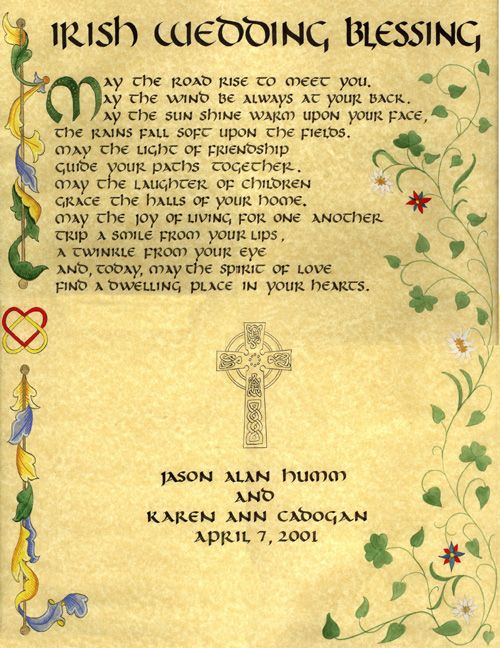 Irish Wedding Blessing
May the road rise to meet you.
May the wind be always at your back.
May the sun shine warm upon your face,
the rains fall soft upon the fields.
May the light of friendship
guide your paths together.
May the laughter of children
grace the halls of your home.
May the joy of living for one another
trip a smile from your lips,
a twinkle from your eye
and, today, may the spirit of love
find a dwelling place in your hearts.
Jason Alan Humm
and
Karen Ann Cadogan
April 7, 2001